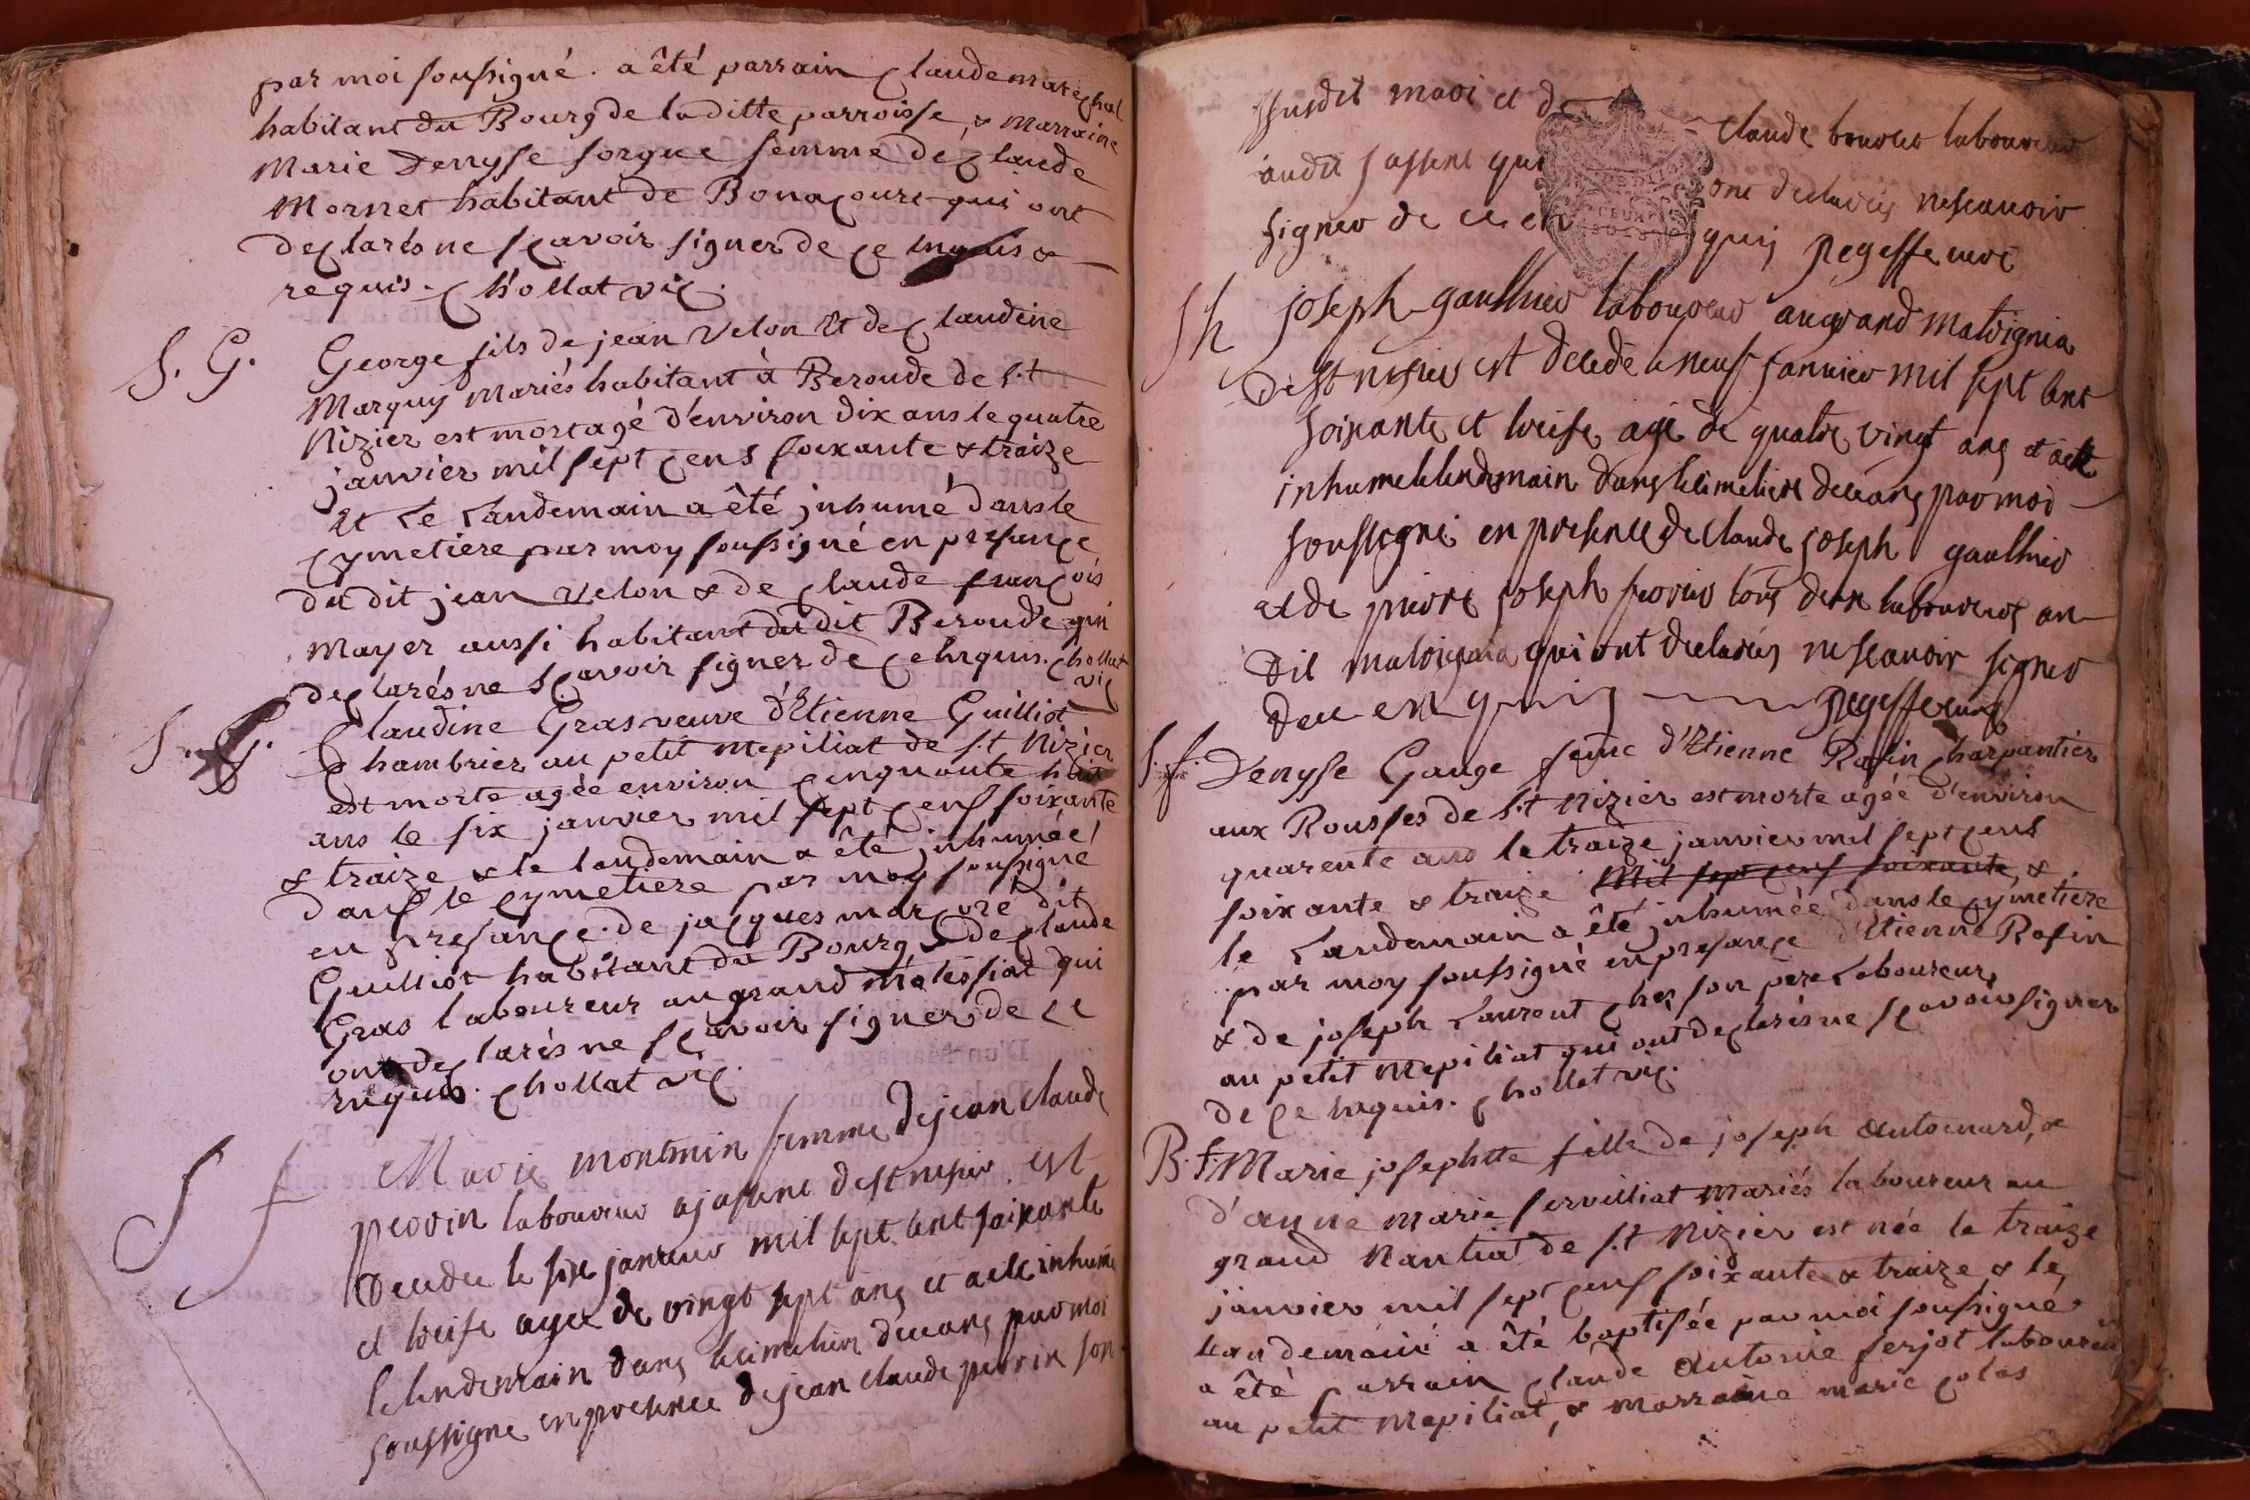 par moi soussigné. a êté parrain Claude maréchal
habitant du Bourg de laditte parroisse, & Marraine
Marie Denyse sorgue femme de Claude
Mornet habitant de Bonacourt qui ont
declarés ne sçavoir signer de ce enquis &
requis. Chollat vic.
S. G. George fils de jean Velon Et de Claudine
Marguy Mariés habitant à Beroude de S.t
Nizier est mort agé d'environ dix ans le quatre
janvier mil sept cens soixante & traize
Et Le Landemain a êté jnhumé dans le
cymetiere par moy soussigné en presance
du dit jean Velon & de Claude françois
mayer aussi habitant du dit Beroude qui
declarés ne sçavoir signer de ce enquis. Chollat
vic
S. G. Claudine Gras veuve d'Etienne Guilliot
Chambrier au petit Mepiliat de S.t Nizier
est morte agée environ cinquante huit
ans le six janvier mil sept cens soixante
& traize & le landemain a êté jnhumée
dans le cymetiere par moy soussigné
en presance de jacques mar dit
Guilliot habitant du Bourg & de Claude
Gras laboureur au grand qui
ont declarés ne sçavoir signer de ce
requis. Chollat vic.
S f Marie montmin femme de jean Claude
perrin laboureur a jassene de st nisier est
decedee le six janvier mil sept cent soixante
et treise agee de vingt sept ans et a ete inhumé
le lendemain dans le cimetiere deceans par moi
soussigne en presence de jean claude perrin son
susdit mari et de Claude laboureur
audit jassene qui ont declarés ne scavoir
signer de ce enquis
S h joseph gauthier laboureur au grand
de st nisier est decede le neuf janvier mil sept cent
soixante et treise agé de quatre vingt ans et a eté
inhume le lendemain dans le cimetiere deceans par moi
soussigné en presence de claude joseph gauthier
et de pierre joseph tous deux laboureurs au
dit qui ont declarés ne scavoir signer
de ce enquis
S. f. Denyse Gauge feme d'Etienne Rafin charpantier
aux Rousses de S.t Nizier est morte agée d'environ
quarente ans le traize janvier mil sept cens
soixante & traize Mil sept cens soixante &
le Landemain a êté jnhumée dans le cymetiere
par moy soussigné en presance d'Etienne Rafin
& de joseph Laurent Ches son père Laboureur
au petit Mepiliat qui ont declarés ne sçavoir signer
de ce enquis. Chollat vic.
B. f. Marie josephtte fille de joseph &
d'anne Marie servilliat Mariés laboureur au
grand Nantiat de S.t Nizier est née le traize
janvier mil sept cens soixante & traize & le
Landemain a êté baptisée par moi soussigné
a êté parrain Claude Antoine perjot laboureur
au petit Mepiliat, & marraine marie colas